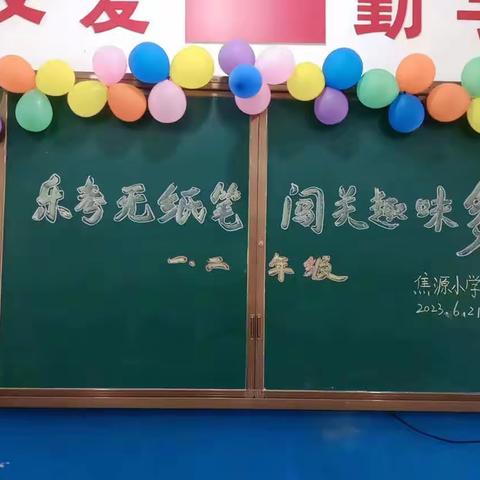 爱 勤
乐考无纸笔 闯关趣味多
一、二年级
焦源小学
2023.6.21